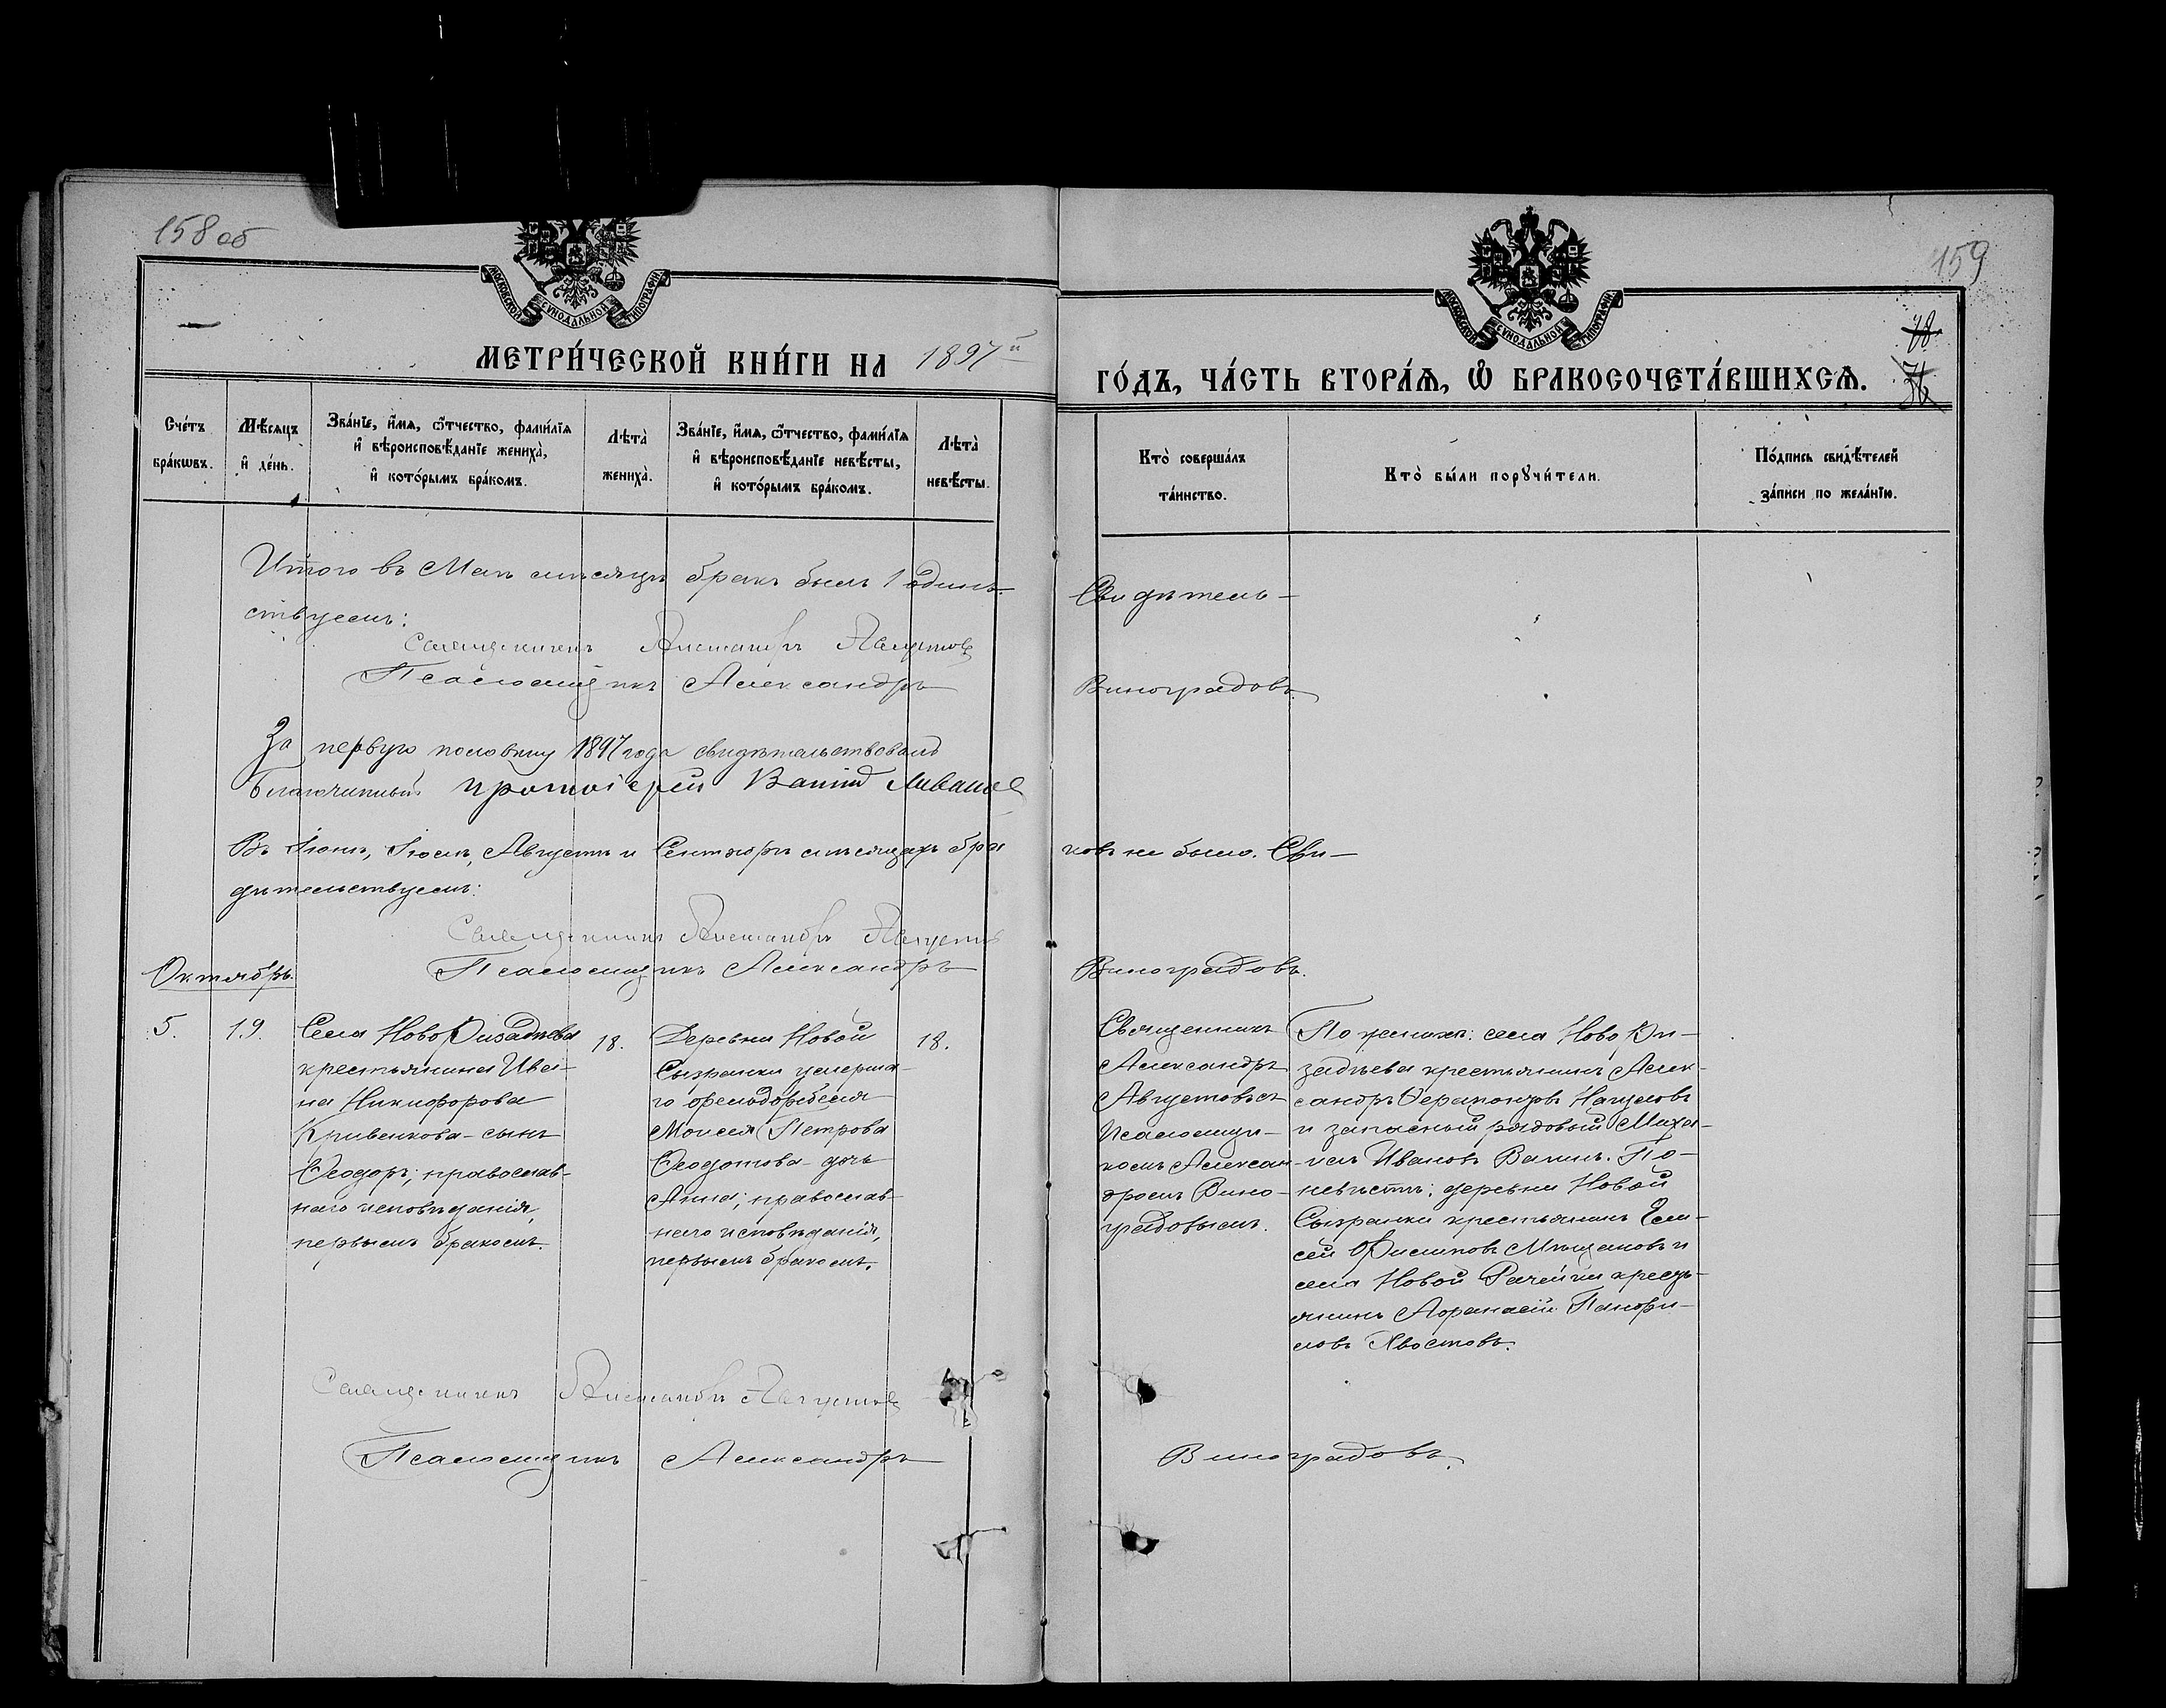 158 об
159
МОСКОВСКОЙ СѴНОДАЛЬНОЙ ТИПОГРАФІИ
МОСКОВСКОЙ СѴНОДАЛЬНОЙ ТИПОГРАФІИ
МЕТРИ́ЧЕСКОЙ КНИ́ГИ НА 1897й
ГО́ДЪ, ЧА́СТЬ ВТОРА́Ѧ, Ѡ҆ БРАКОСОЧЕТА́ВШИХСѦ.
Сче́тъ бра́кѡвъ.
Мѣ́сѧцъ и҆ де́нь.
Зва́нїе, и҆́мѧ, ѻ҆́тчество, фами́лїѧ
и҆ вѣроисповѣ́данїе жениха̀,
и҆ кото́рымъ бра́комъ.
Лѣта̀ жениха̀.
Зва́нїе, и҆́мѧ, ѻ҆́тчество, фами́лїѧ
и҆ вѣроисповѣ́данїе невѣ́сты,
и҆ кото́рымъ бра́комъ.
Лѣта̀ невѣ́сты.
Кто̀ соверша́лъ
та́инство.
Кто̀ бы́ли порꙋчи́тели.
По́дпись свидѣ́телей
за́писи по жела́нїю.
Итого въ Маѣ мѣсяцѣ бракъ былъ 1 одинъ. Свидѣтель-
ствуемъ:
Священникъ Александръ Августовъ
Псаломщикъ Александръ Виноградовъ.
За первую половину 1897 года свидѣтельствовалъ
Благочинный протоіерей
Въ Іюнѣ, Іюлѣ, Августѣ и Сентябрѣ мѣсяцахъ бра ковъ не было. Сви-
дѣтельствуемъ:
Священникъ Александръ Августовъ
Псаломщикъ Александръ Виноградовъ.
Октябрь.
5.
19.
Села Ново Ризадѣева
крестьянина Ива-
на Никифорова
Кривенкова - сынъ
Ѳеодоръ; православ-
наго исповѣданія,
первымъ бракомъ.
18.
Деревни Новой
Сызранки умерша-
го
Моисея Петрова
Ѳеодотова - дочь
Анна; православ-
наго исповѣданія,
первымъ бракомъ.
18.
Священникъ
Александръ
Августовъ съ
псаломщи-
комъ Алексан-
дромъ Вино-
градовымъ.
По женихѣ: села Ново Ри-
задѣева крестьянинъ Алек-
сандръ Ѳерапонтовъ
и запасный рядовый Миха-
илъ Ивановъ Ванинъ. По
невѣстѣ: деревни Новой
Сызранки крестьянинъ Ели-
сей Филиповъ Мѣщановъ и
села Новой Рачейки кресть-
янинъ Афанасій Панфи-
ловъ Хвостовъ.
Священникъ Александръ Августовъ
Псаломщикъ Александръ Виноградовъ.